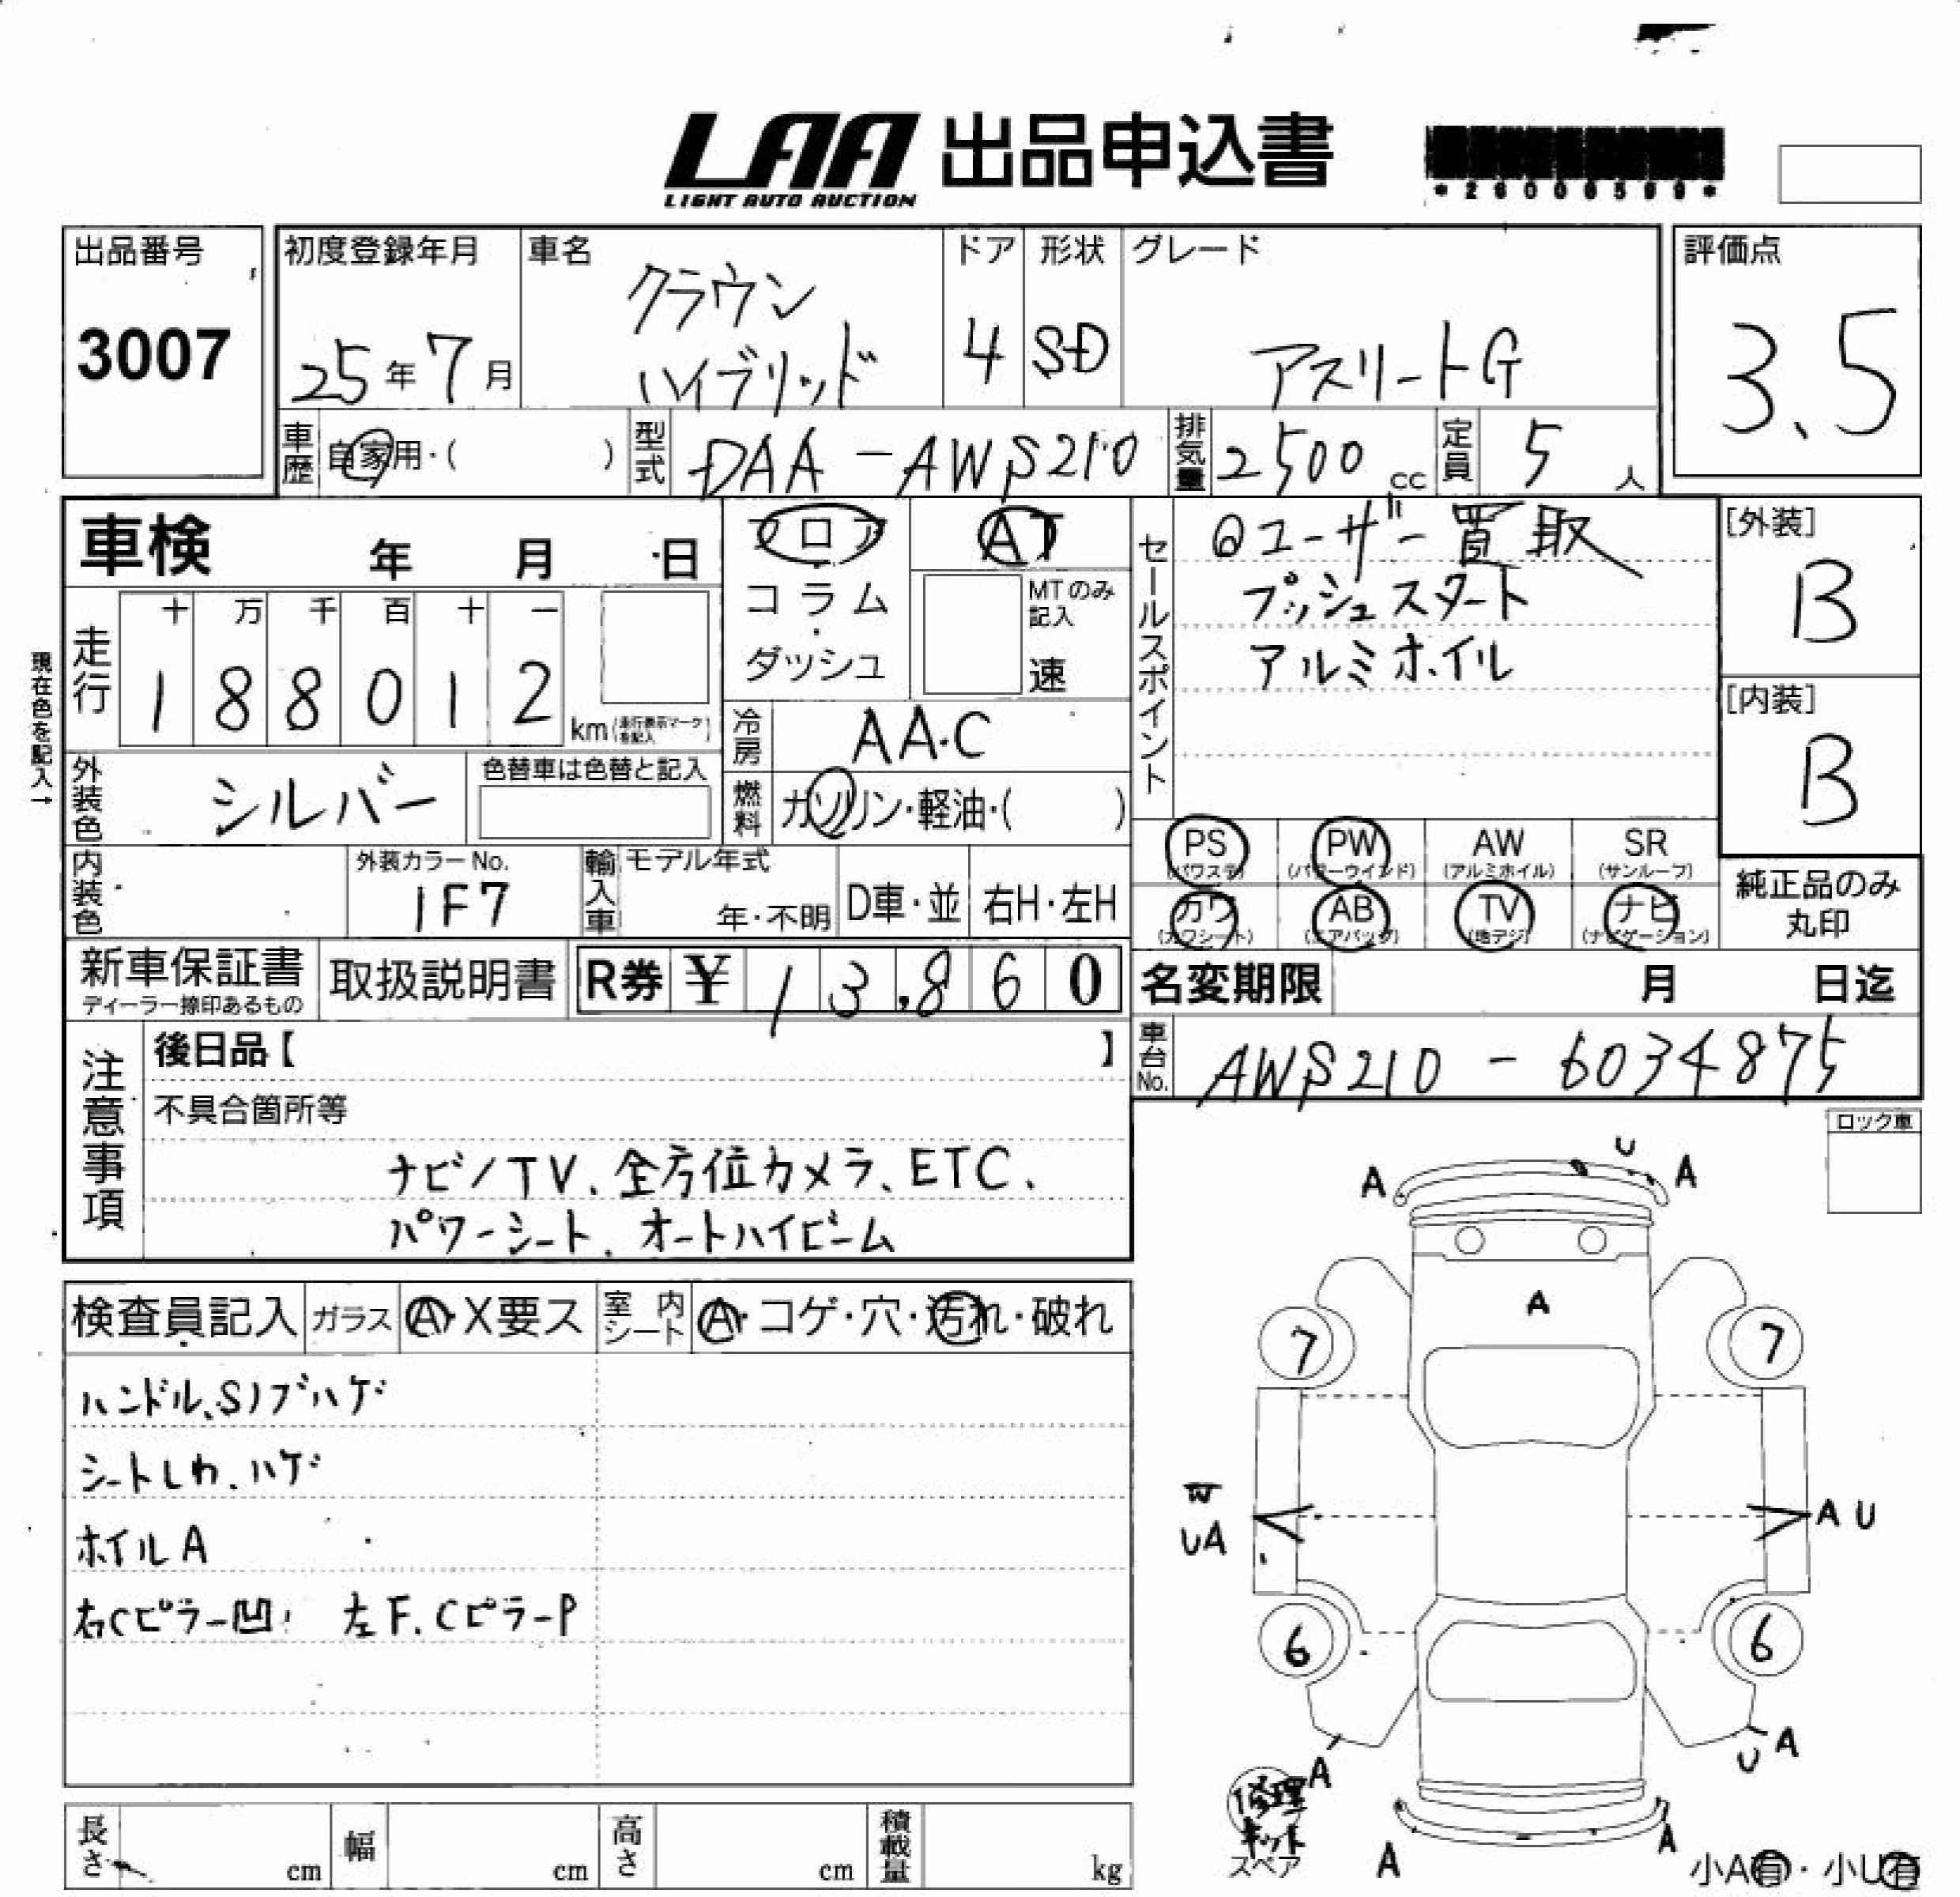 LAA 出品申込書
LIGHT AUTO AUCTION
出品番号
3007
初度登録年月
25年7月
車名
クラウン
ハイブリッド
ドア
4
形状
SD
グレード
アスリートG
評価点
3.5
車歴
自家用・( )
型式
DAA-AWS210
排気量
2500 cc
定員
5 人
車検 年 月 日
フロア
コラム
・
ダッシュ
AT
MTのみ
記入
速
現在色を記入→
走行
十 万 千 百 十 一
1 8 8 0 1 2
km (走行表示マークを記入)
冷房
AA.C
燃料
ガソリン・軽油・( )
外装色
シルバー
色替車は色替と記入
内装色
外装カラーNo.
1F7
輸入車
モデル年式
年・不明
D車・並
右H・左H
セールスポイント
◎ユーザー買取
プッシュスタート
アルミホイル
[外装]
B
[内装]
B
PS PW AW SR
(パワステ) (パワーウインド) (アルミホイル) (サンルーフ)
カワ AB TV ナビ
(カワシート) (エアバッグ) (地デジ) (ナビゲーション)
純正品のみ
丸印
新車保証書
ディーラー捺印あるもの
取扱説明書
R券 ¥ 13,860
名変期限 月 日迄
車台No.
AWS210-6034875
注意事項
後日品【 】
不具合箇所等
ナビ/TV、全方位カメラ、ETC、
パワーシート、オートハイビーム
ロック車
検査員記入 ガラス A・X要ス 室内シート A・コゲ・穴・汚れ・破れ
ハンドル、Sノブハゲ
シートしわ、ハゲ
ホイルA
右Cピラー凹 左F.CピラーP
A U A
A
7 7
W
UA
A U
6 6
A
U A
修理
キット
スペア
A A
小A有・小U有
長さ cm 幅 cm 高さ cm 積載量 kg